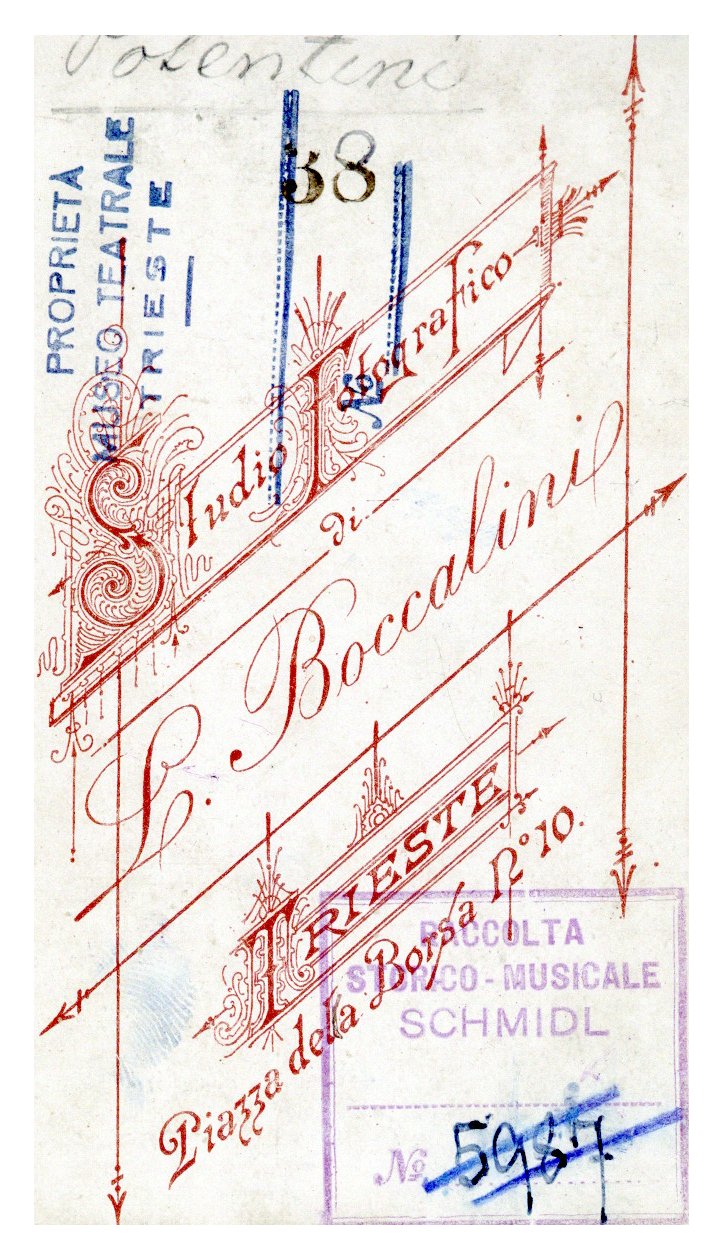 Polentini
38
PROPRIETÀ
MUSEO TEATRALE
TRIESTE
No
Studio Fotografico
di
L. Boccalini
TRIESTE
Piazza della Borsa No 10.
RACCOLTA
STORICO-MUSICALE
SCHMIDL
No 5987